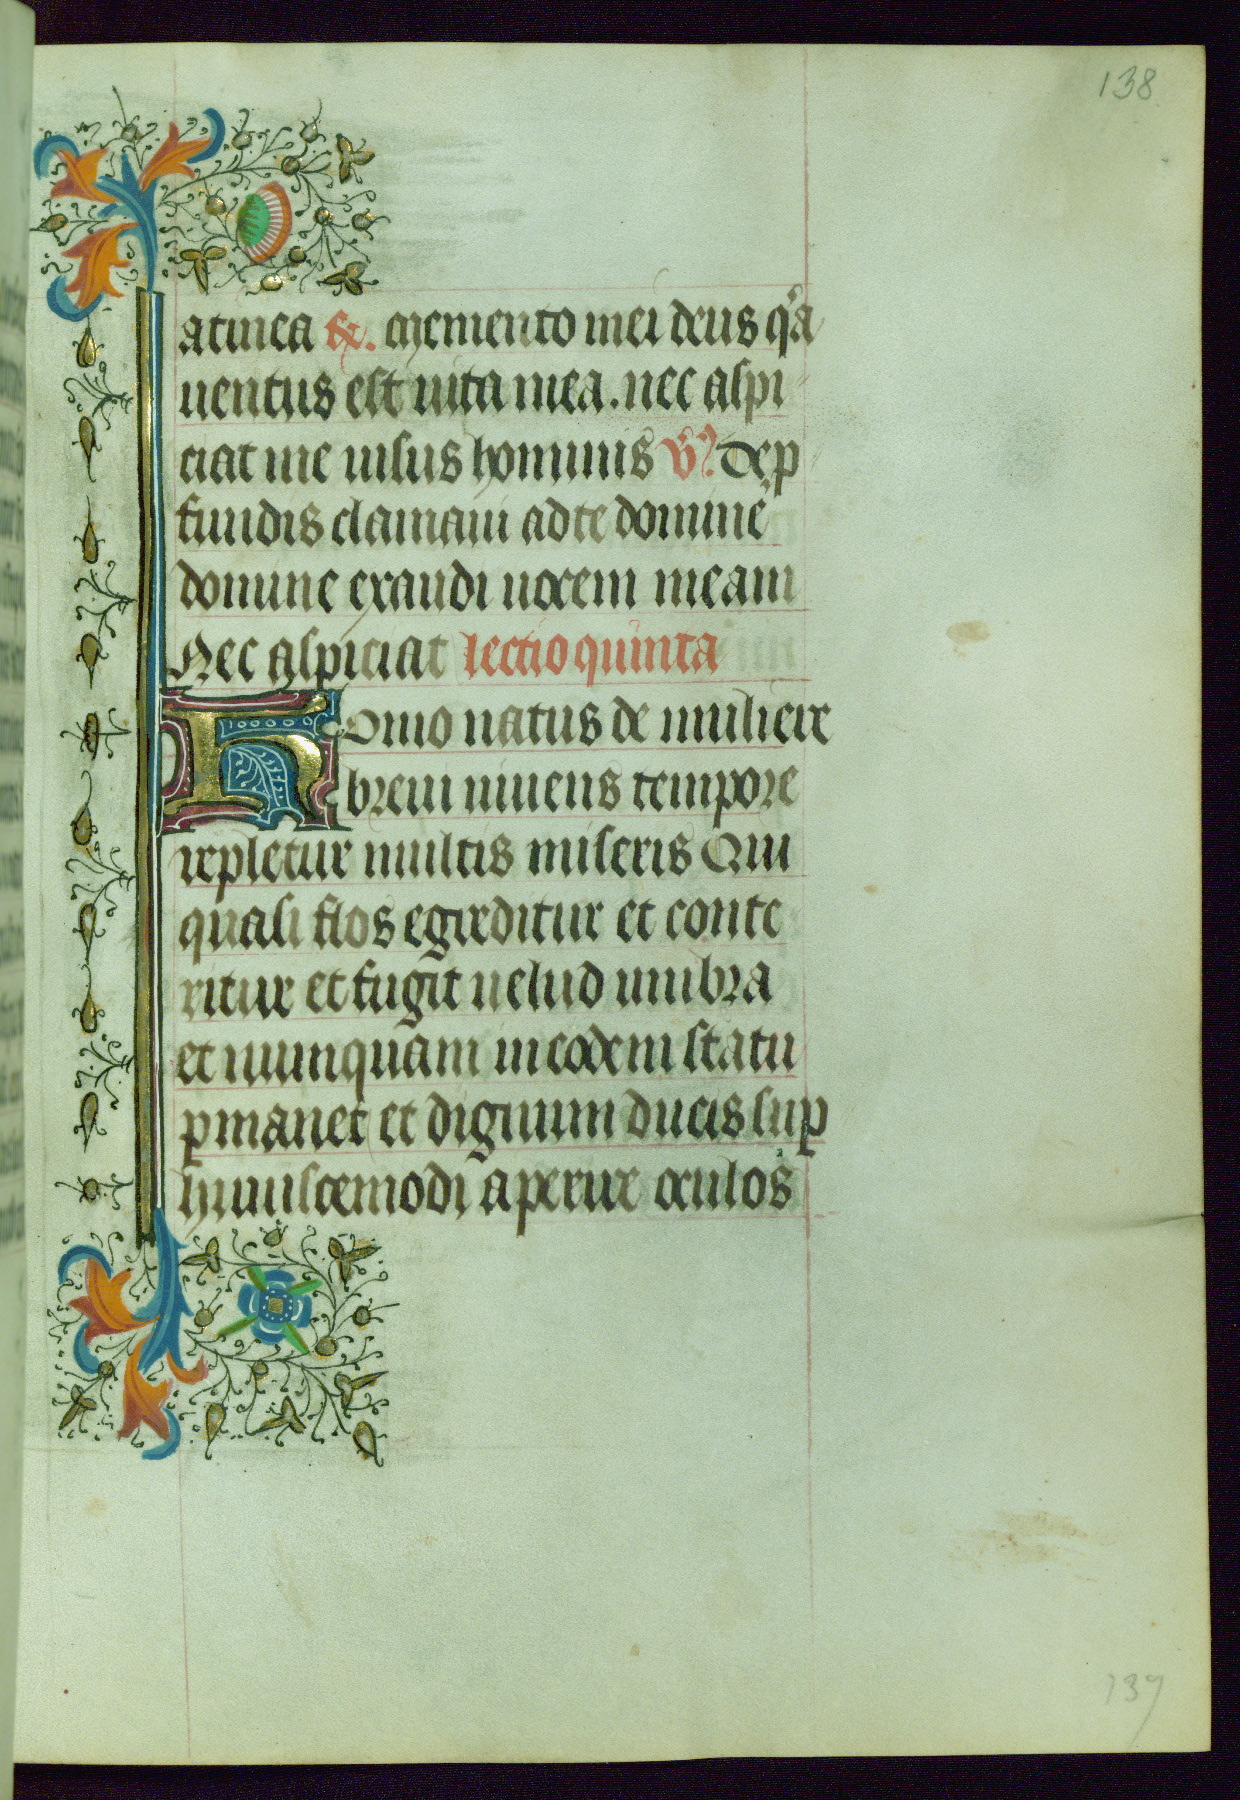 138
at mea R. Memento mei deus q̓a
uentus est uita mea. nec aspi
ciat me uisus hominis V. De p
fundis clamaui ad te domine
domine exaudi uocem meam
Nec aspiciat lectio quinta
Homo natus de muliere
breui uiuens tempore
repletur multis miseris Qui
quasi flos egreditur et conte
ritur et fugit uelud umbra
et nunquam in eodem statu
pmanet et dignum ducis sup
huiuscemodi aperire oculos
139